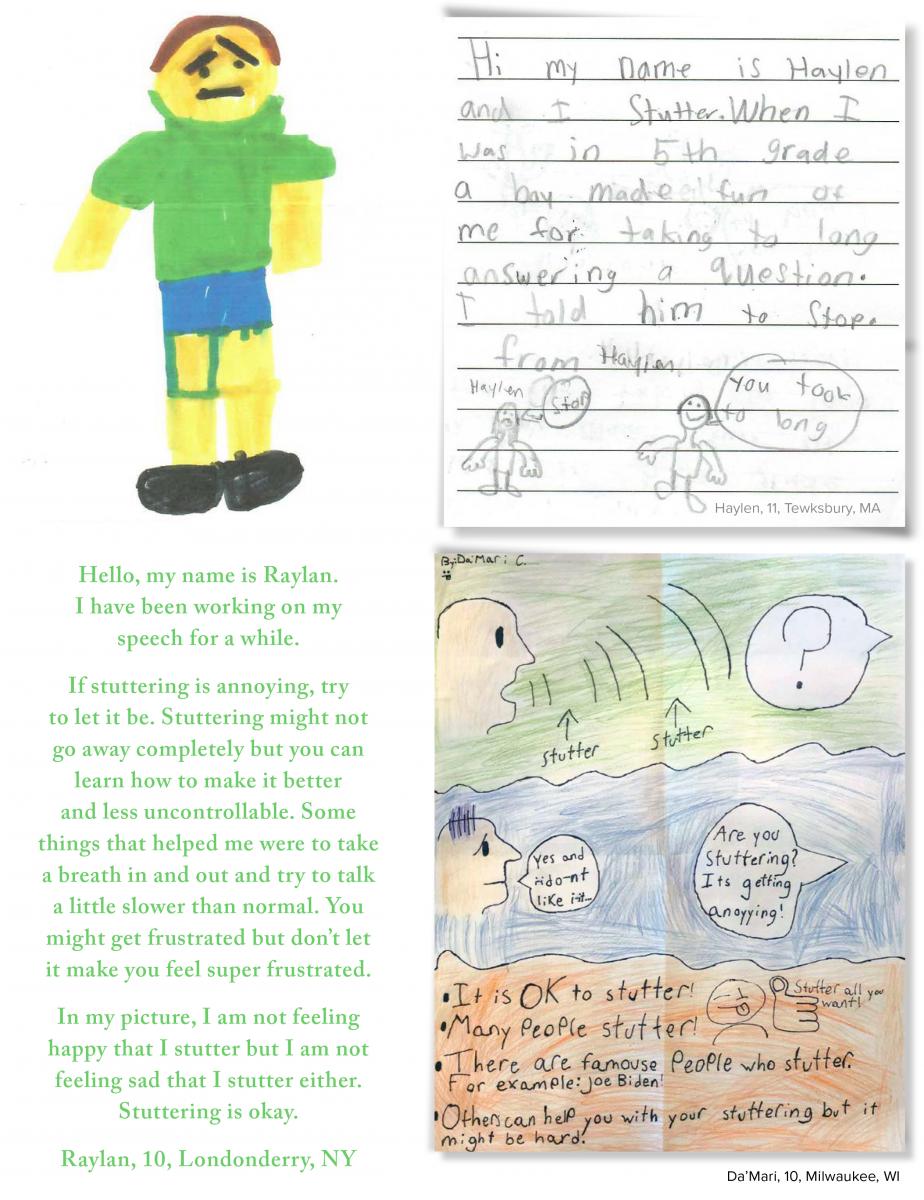 Hi my name is Haylen
and I Stutter. When I
was in 5th grade
a boy made fun of
me for taking to long
answering a question.
I told him to Stop.
from Haylen
Haylen
Stop
you took
to long
Haylen, 11, Tewksbury, MA
Hello, my name is Raylan.
I have been working on my
speech for a while.
If stuttering is annoying, try
to let it be. Stuttering might not
go away completely but you can
learn how to make it better
and less uncontrollable. Some
things that helped me were to take
a breath in and out and try to talk
a little slower than normal. You
might get frustrated but don't let
it make you feel super frustrated.
In my picture, I am not feeling
happy that I stutter but I am not
feeling sad that I stutter either.
Stuttering is okay.
Raylan, 10, Londonderry, NY
By: Da'Mari C.
?
stutter
stutter
Are you
stuttering?
Its getting
anoyying!
yes and
i-i do-nt
like i-it...
• It is OK to stutter!
Stutter all you
want!
• Many People stutter!
• There are famouse People who stutter.
For example: Joe Biden!
• Others can help you with your stuttering but it
might be hard!
Da'Mari, 10, Milwaukee, WI